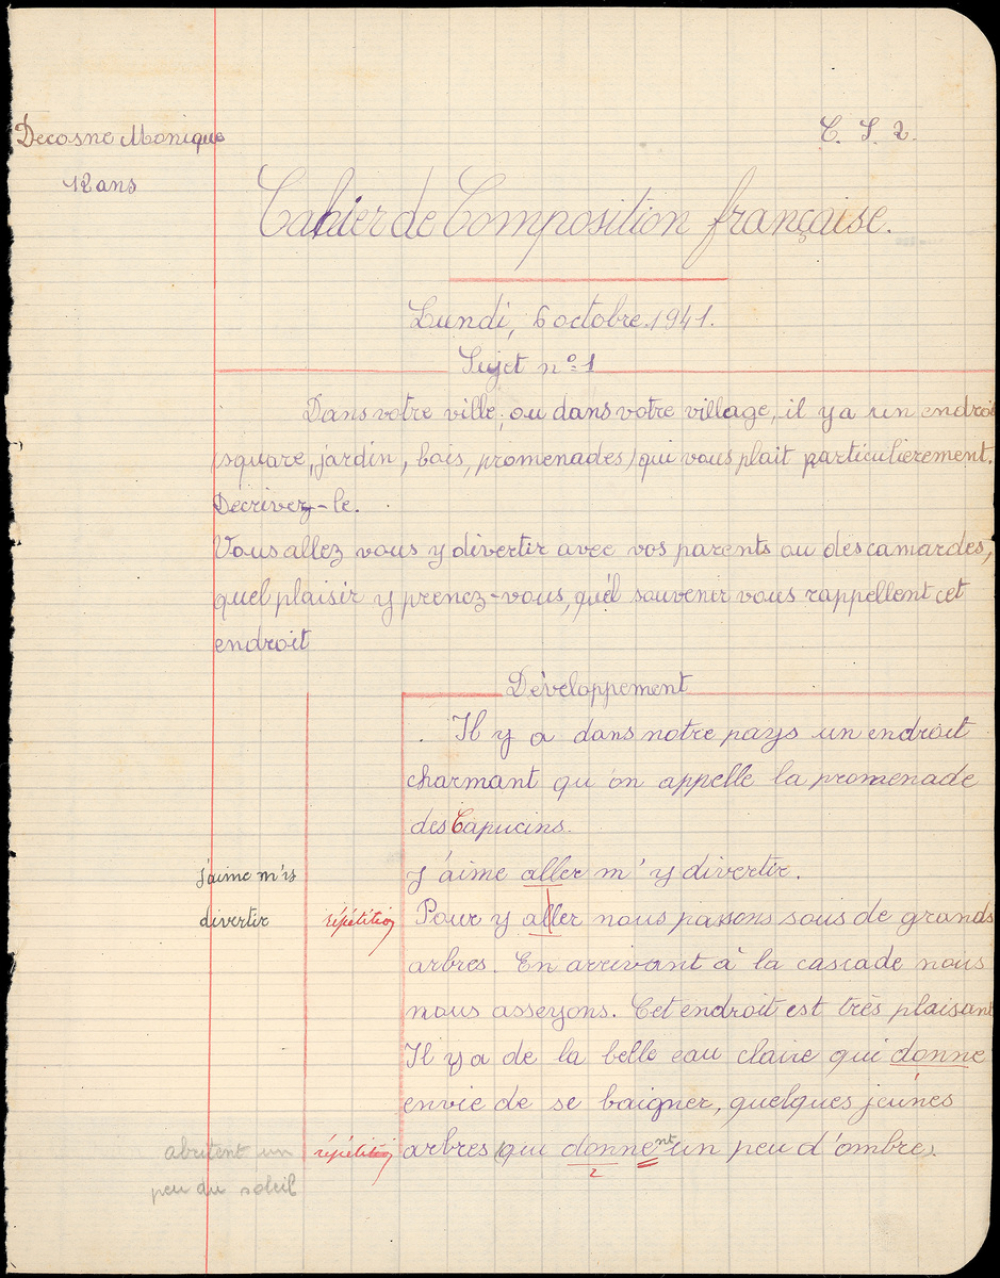 Decosne Monique
C. S 2.
12 ans
Cahier de Composition française.
Lundi, 6 octobre 1941.
Sujet n° 1
Dans votre ville, ou dans votre village, il y a un endroit
(square, jardin, bois, promenades) qui vous plait particulièrement.
Décrivez-le.
Vous allez vous y divertir avec vos parents ou des camardes,
quel plaisir y prenez-vous, quel souvenir vous rappellent cet
endroit
Développement
Il y a dans notre pays un endroit
charmant qu'on appelle la promenade
des Capucins.
j'aime m'y
J'aime aller m'y divertir.
divertir
répétition
Pour y aller nous passons sous de grands
arbres. En arrivant à la cascade nous
nous asseyons. Cet endroit est très plaisant
Il y a de la belle eau claire qui donne
envie de se baigner, quelques jeunes
abritent un
répétition
arbres (qui donnent un peu d'ombre).
2
peu du soleil